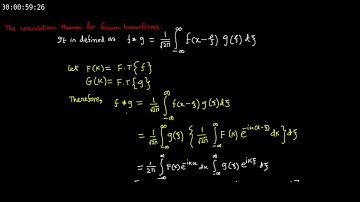 30:00:59:26
The convolution theorem for fourier transforms:
It is defined as f * g = 1/√2π ∫_{-∞}^{∞} f(x-ξ) g(ξ) dξ
Let F(K) = F.T{f}
G(K) = F.T{g}
Therefore, f * g = 1/√2π ∫_{-∞}^{∞} f(x-ξ) g(ξ) dξ
= 1/√2π ∫_{-∞}^{∞} g(ξ) { 1/√2π ∫_{-∞}^{∞} F(K) e^{-iK(x-ξ)} dK } dξ
= 1/2π ∫_{-∞}^{∞} F(K) e^{-iKx} dK ∫_{-∞}^{∞} g(ξ) e^{iKξ} dξ